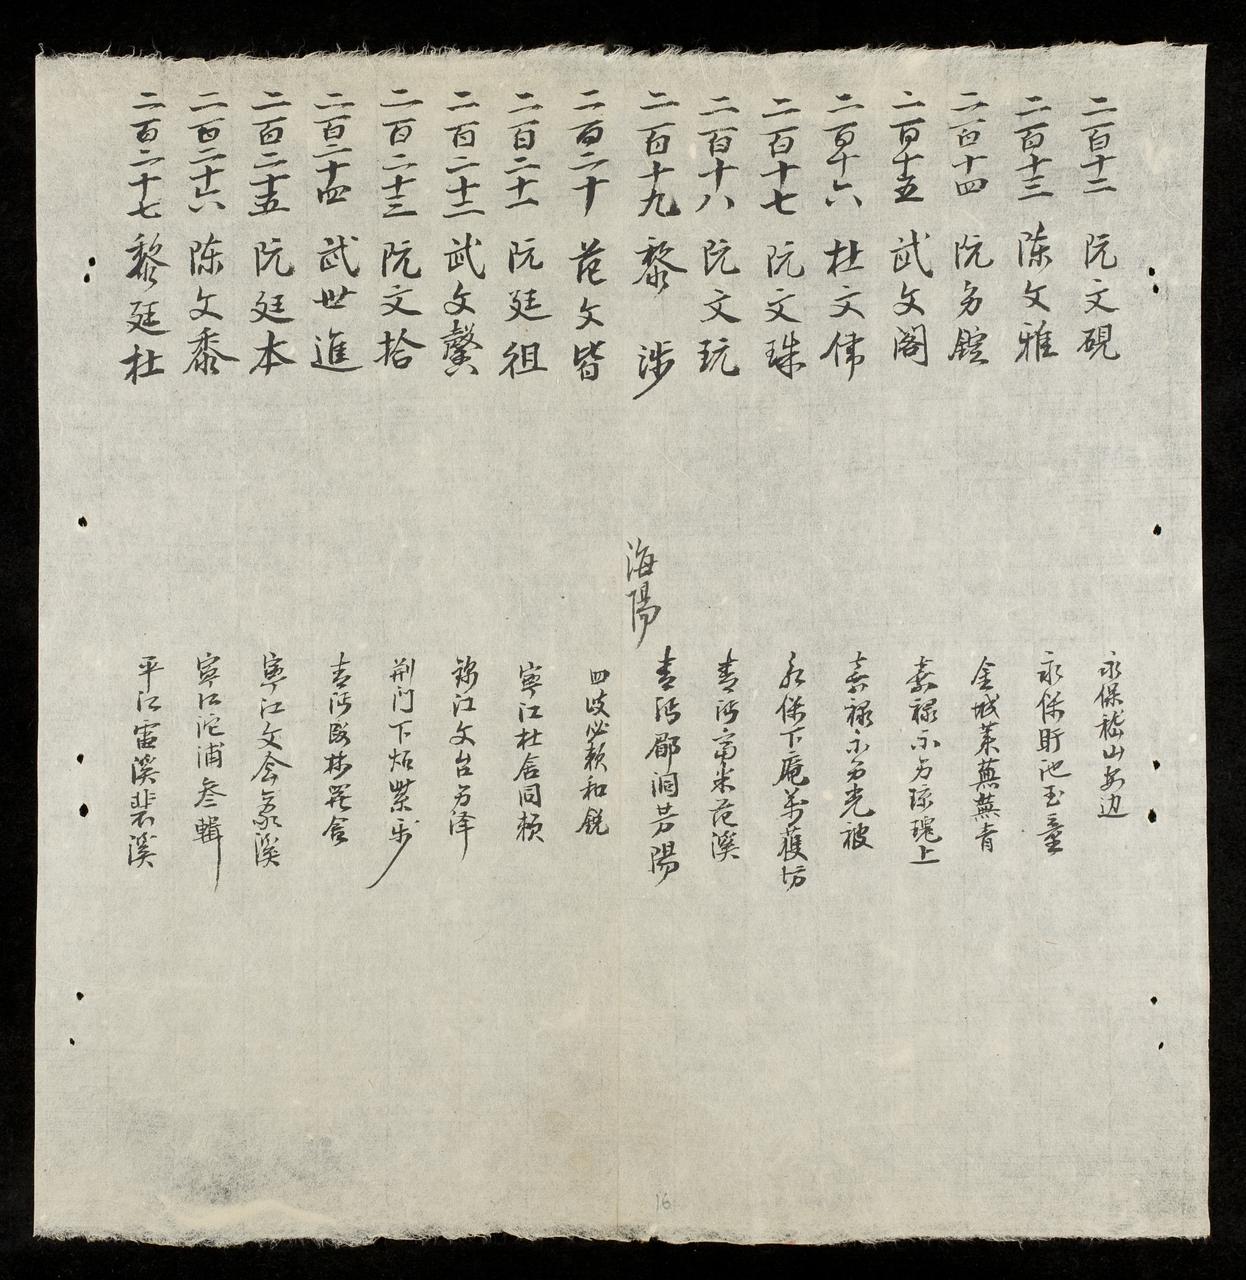 二百十二 阮文硯 永保嵇山安边
二百十三 陈文雅 永保盱池玉童
二百十四 阮另鏗 金城萊蕪蕪青
二百十五 武文閣 嘉禄示另琼瑰上
二百十六 杜文偉 嘉禄示另光被
二百十七 阮文珠 永保下庵萬穫坊
二百十八 阮文玩 青沔富米范溪
二百十九 黎涉 海陽 青沔郿洞芳陽
二百二十 范文皆 四岐必賴和銳
二百二十一 阮廷徂 寧江杜舍同賴
二百二十二 武文馨 錦江文台另泽
二百二十三 阮文拾 荆门下炤紫
二百二十四 武世進 青沔林舍
二百二十五 阮廷本 寧江文会溪
二百二十六 陈文黍 寧江沱浦叁輯
二百二十七 黎廷杜 平江雷溪裴溪
16